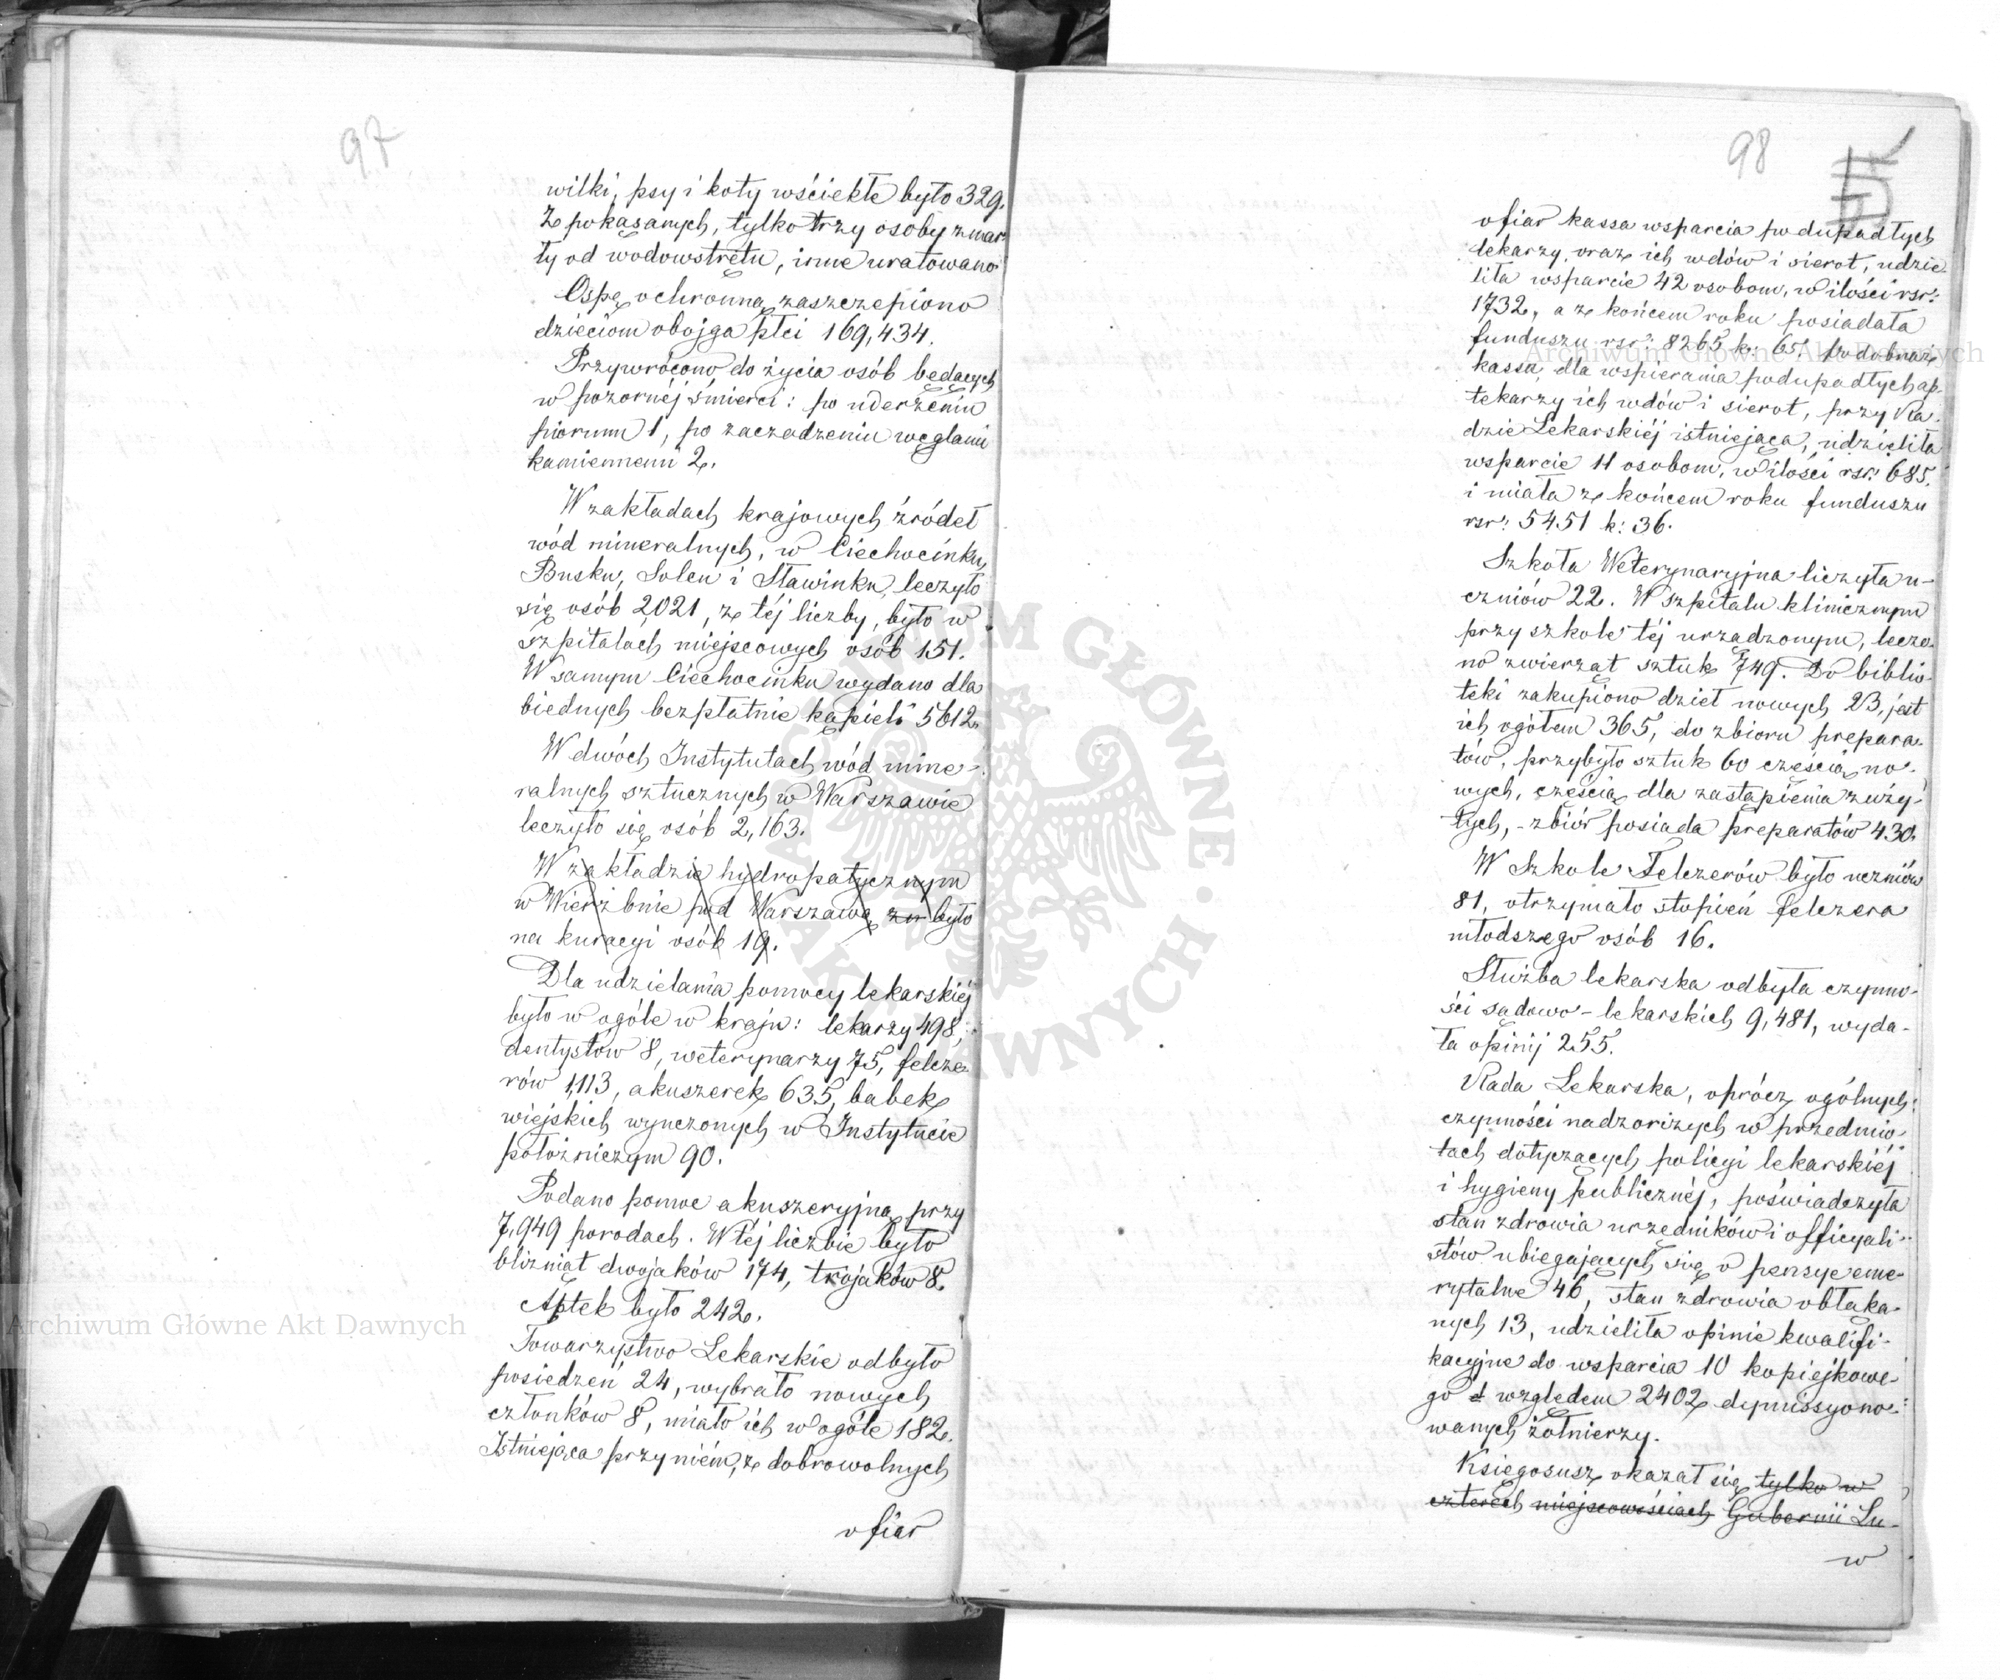 97
wilki, psy i koty wściekłe było 329.
Ze pokąsanych, tylko trzy osoby zmar-
ły od wodowstrętu, inne uratowano.
Ospę ochronną zaszczepiono
dzieciom obojga płci 169,434.
Przywrócono do życia osób będących
w pozornéj śmierci: po uderzeniu
piorunu 1, po zaczadzeniu węglami
kamiennemi 2.
W zakładach krajowych źródeł
wód mineralnych, w Ciechocinku,
Busku, Solcu i Sławinku, leczyło
się osób 2,021, ze téj liczby, było w
szpitalach miejscowych osób 151.
W samym Ciechocinku wydano dla
biednych bezpłatnie kąpieli 5612.
W dwóch Instytutach wód mine-
ralnych sztucznych w Warszawie
leczyło się osób 2,163.
W zakładzie hydropatycznym
w Wierzbnie pod Warszawą zn było
na kuracyi osób 19.
Dla udzielania pomocy lekarskiéj
było w ogóle w kraju: lekarzy 498,
dentystów 8, weterynarzy 75, felcze-
rów 1,113, akuszerek 635, babek
wiejskich wyuczonych w Instytucie
położniczym 90.
Podano pomoc akuszeryjną przy
7,949 porodach. W téj liczbie było
bliźniąt dwojaków 174, trojaków 8.
Aptek było 242.
Towarzystwo Lekarskie odbyło
posiedzeń 24, wybrało nowych
członków 8, miało ich w ogóle 182.
Istniejąca przy niém, ze dobrowolnych
ofiar
98
ofiar kassa wsparcia podupadłych
lekarzy, oraz ich wdów i sierot, udzie-
liła wsparcie 42 osobom, w ilości rsr:
1732, a ze końcem roku posiadała
funduszu rsr: 8265 k: 65. podobnaż
kassa, dla wspierania podupadłych ap-
tekarzy ich wdów i sierot, przy Ra-
dzie Lekarskiéj istniejąca, udzieliła
wsparcie 11 osobom, w ilości rsr: 685.
i miała ze końcem roku funduszu
rsr: 5451 k: 36.
Szkoła Weterynaryjna liczyła u-
czniów 22. W szpitalu klinicznym
przy szkole téj urządzonym, leczo-
no zwierząt sztuk 749. Do biblio-
teki zakupiono dzieł nowych 23, jest
ich ogółem 365, do zbioru prepara-
tów, przybyło sztuk 60 częścią no-
wych, częścią dla zastąpienia zuży-
tych, - zbiór posiada preparatów 430.
W Szkole Felczerów było uczniów
81, otrzymało stopień felczera
młodszego osób 16.
Służba lekarska odbyła czynno-
ści sądowo-lekarskich 9,481, wyda-
ła opinij 255.
Rada Lekarska, oprócz ogólnych
czynności nadzorczych w przedmio-
tach dotyczących policyi lekarskiéj
i hygieny publicznéj, poświadczyła
stan zdrowia urzędników i officyali-
stów ubiegających się o pensye eme-
rytalne 46, stan zdrowia obłąka-
nych 13, udzieliła opinie kwalifi-
kacyjne do wsparcia 10 kopiejkowe-
go względem 2402 dymissyono-
wanych żołnierzy.
Księgosusz okazał się tylko w
czterech miejscowościach Gubernii Lu-
w
Archiwum Główne Akt Dawnych
Archiwum Główne Akt Dawnych
ARCHIWUM GŁÓWNE AKT DAWNYCH